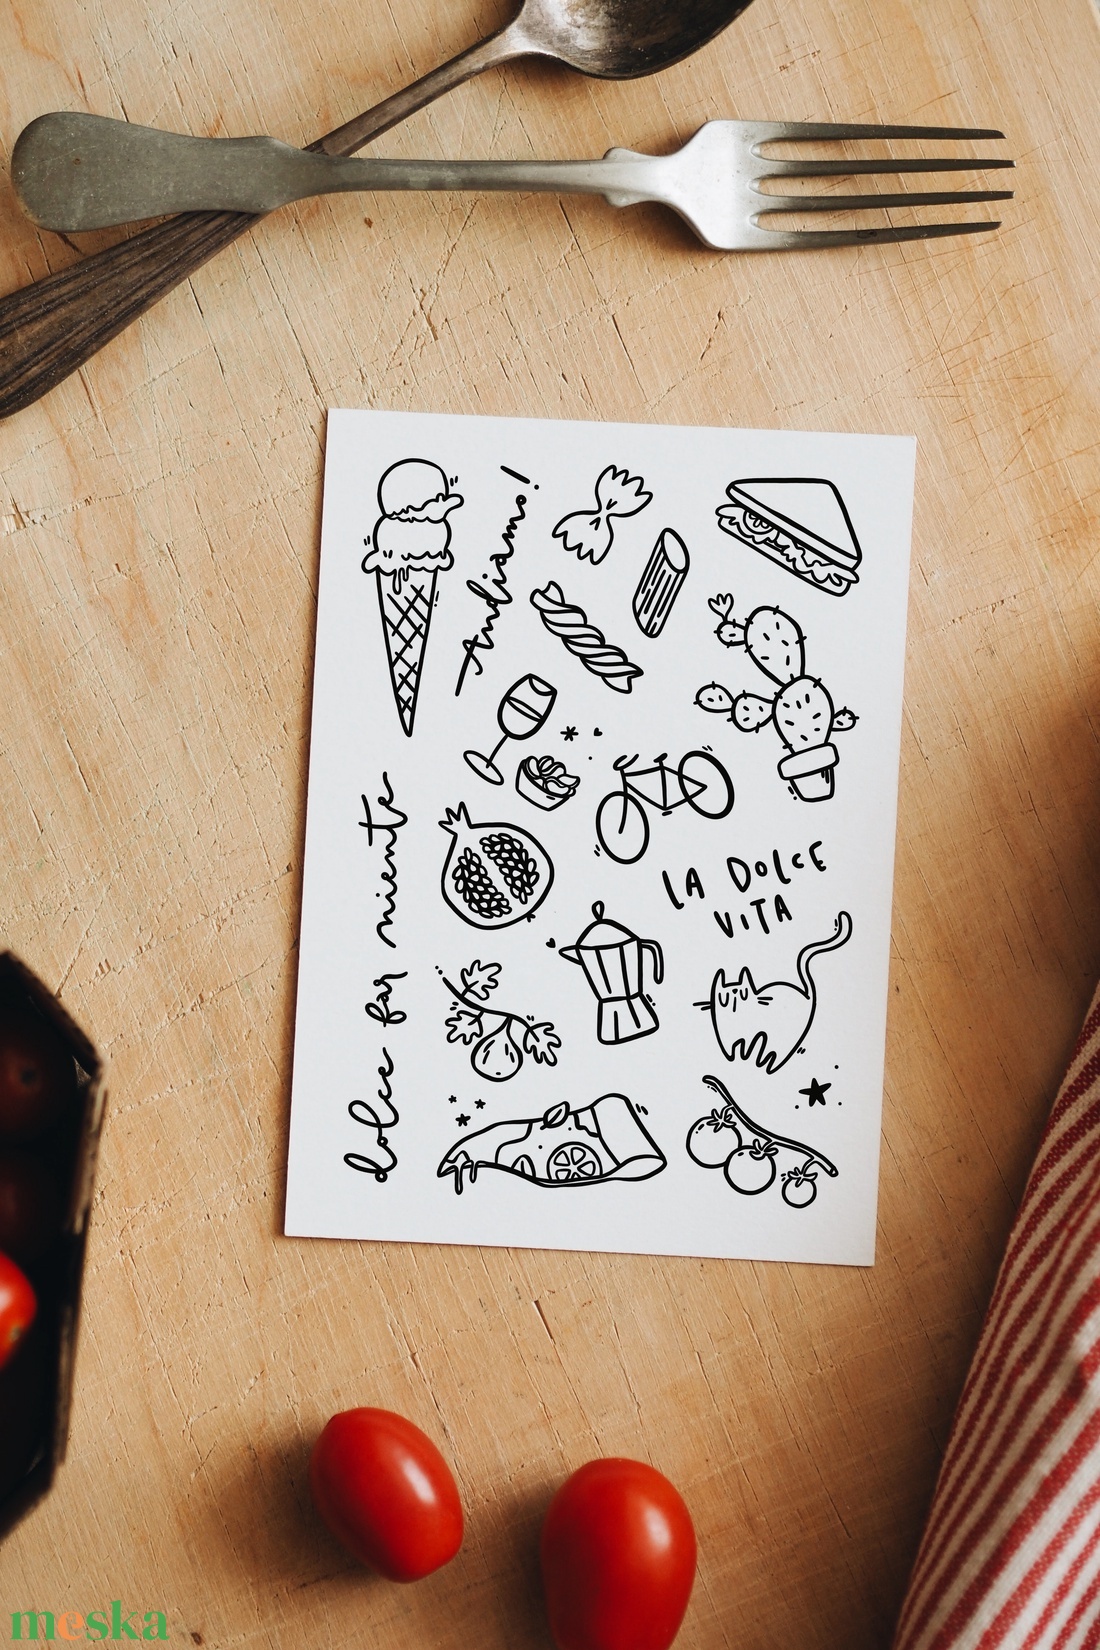 Andiamo!
dolce far niente
LA DOLCE
VITA
meska